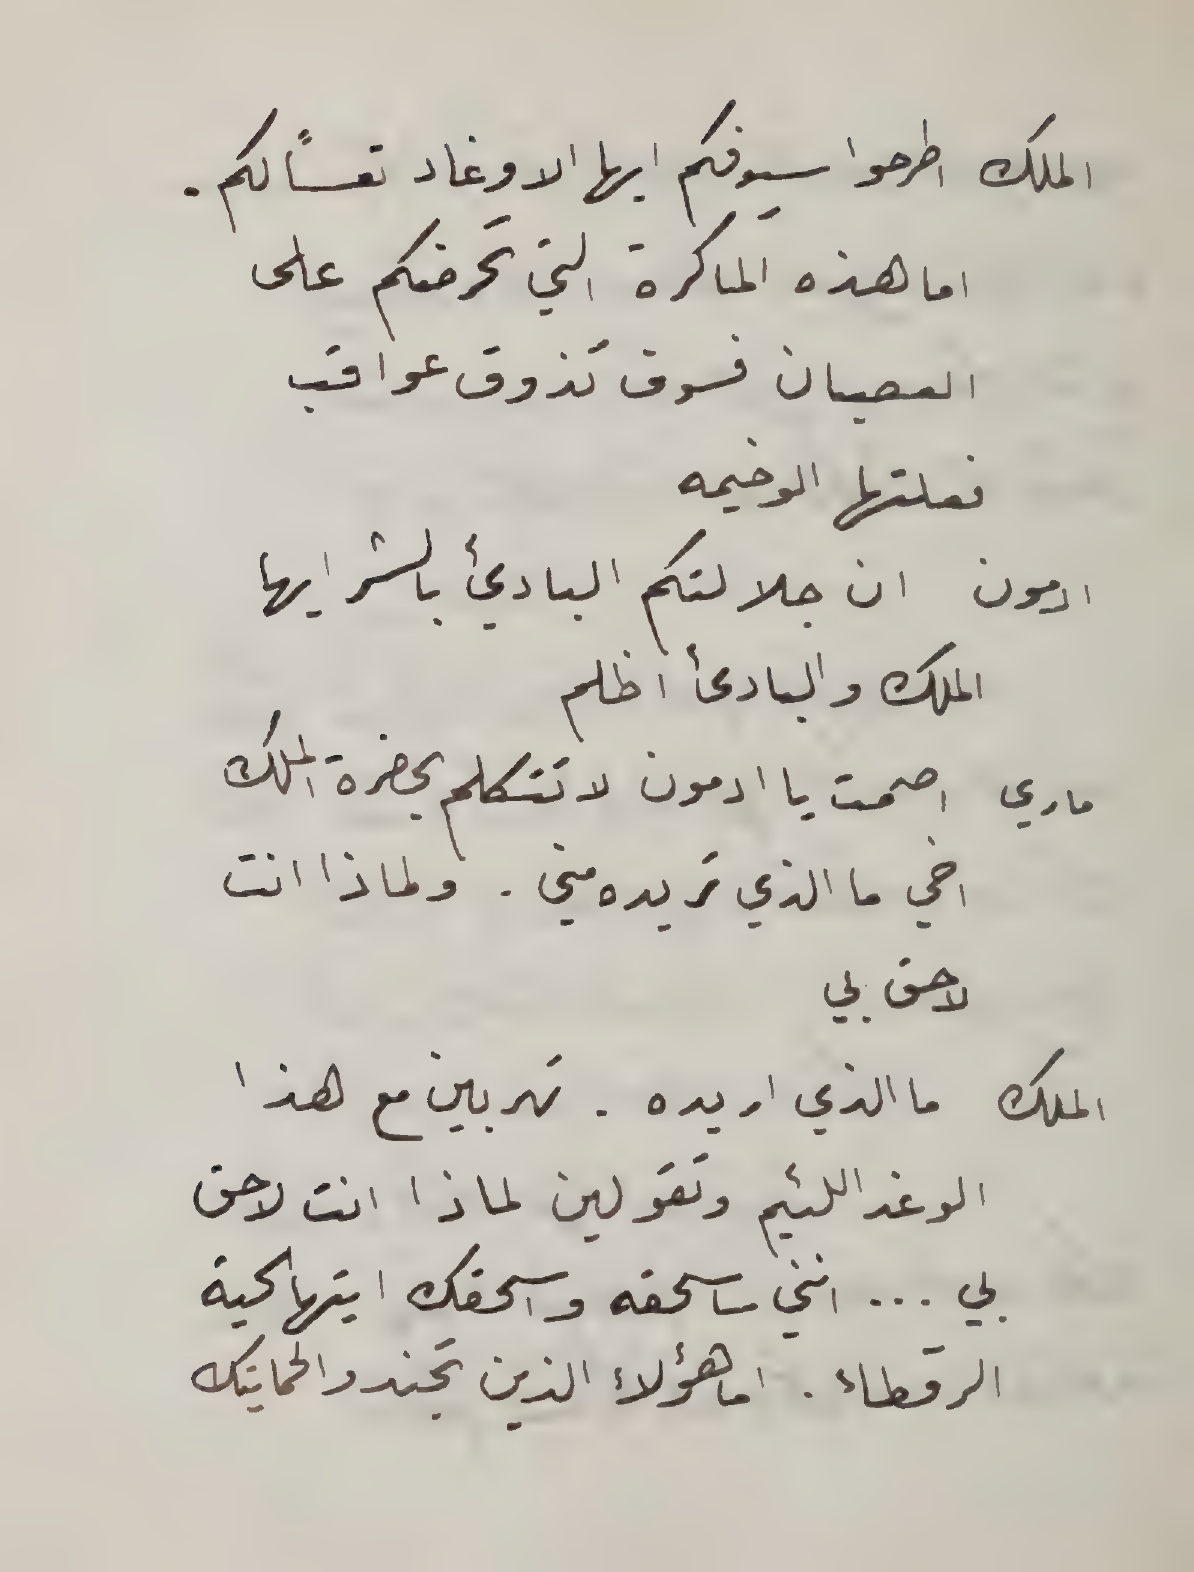 الملك اطرحوا سيوفكم ايها الاوغاد تعساً لكم .
اما هذه الماكرة التي تحرضكم على
العصيان فسوف تذوق عواقب
فعلتها الوخيمه
ادمون ان جلالتكم البادئ بالشر ايها
الملك والبادئ اظلم
ماري اصمت يا ادمون لا تتكلم بحضرة الملك
اخي ما الذي تريده مني . ولماذا انت
لاحق بي
الملك ما الذي اريده . تهربين مع هذا
الوغد اللئيم وتقولين لماذا انت لاحق
بي ... انني ساسحقه واسحقك ايتها الحية
الرقطاء . اما هؤلاء الذين تجندوا لحمايتك